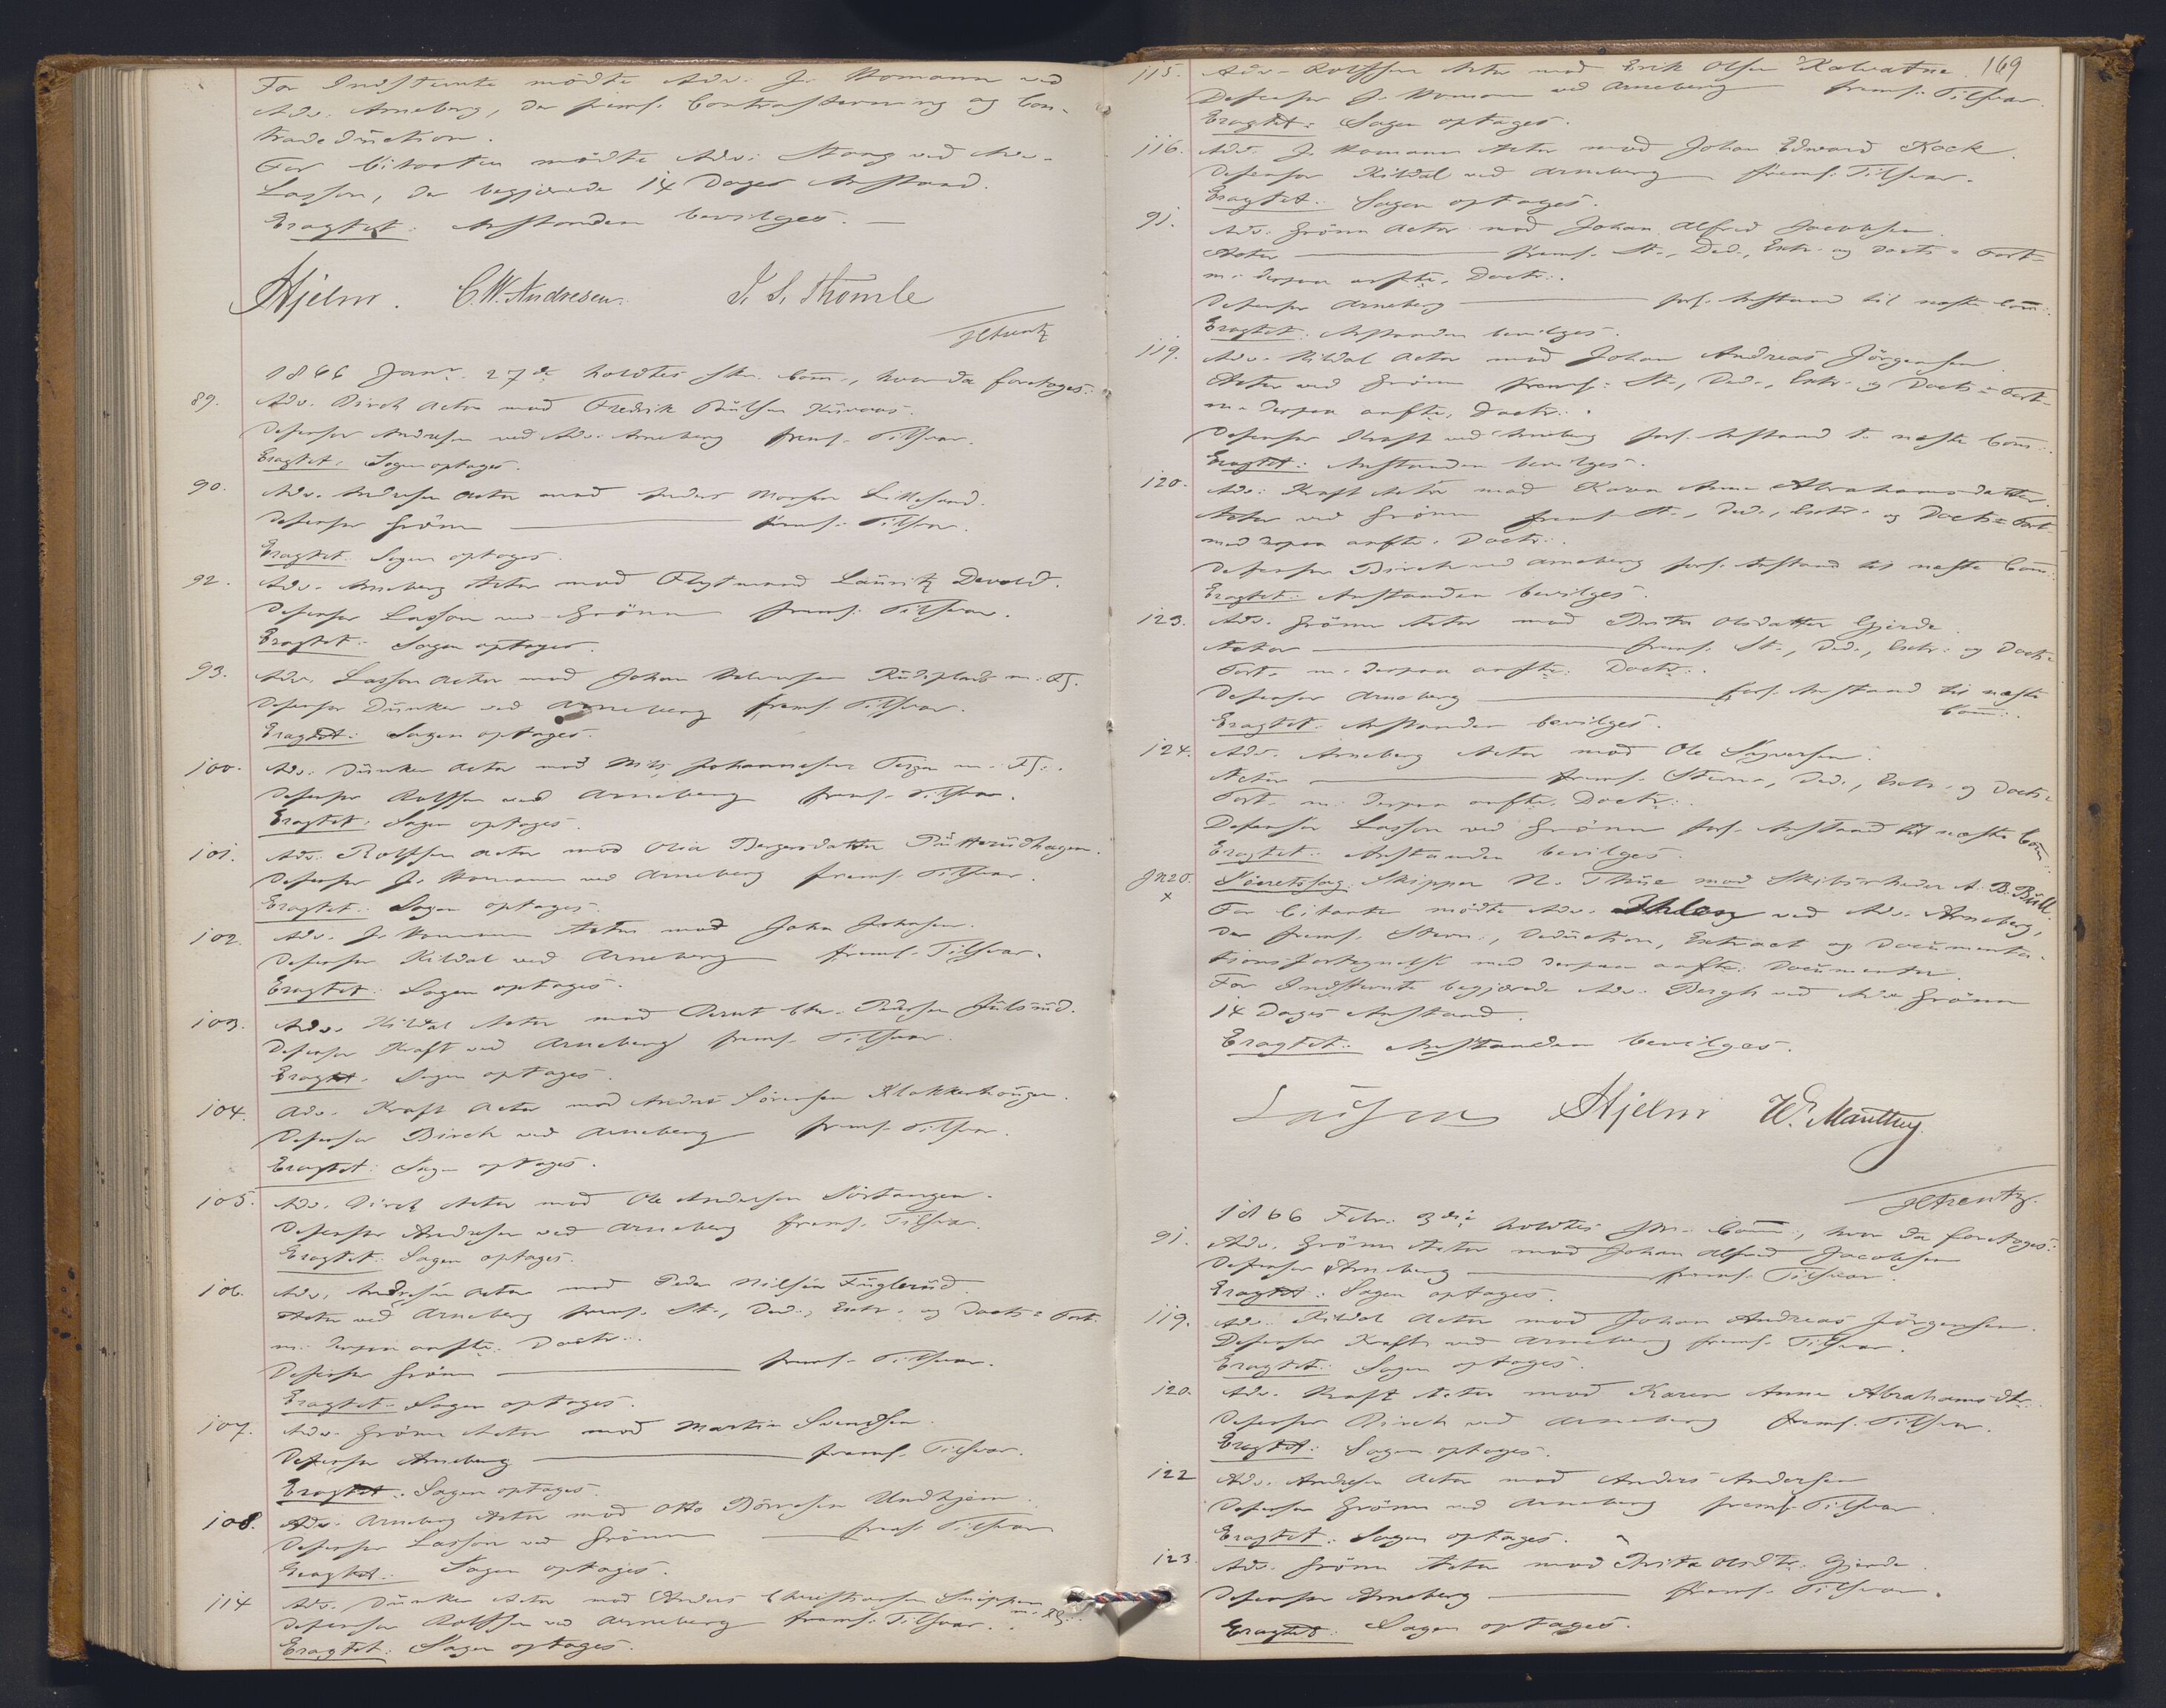 For Indstevnte mödte Adv. J. Homann ved
Adv. Arneberg, der frems. Contrastevning og Con-
tradeduction.
For Citanten mödte Adv. Stang ved Adv.
Lasson, der begjærede 14 Dages Anstand.
Eragtet: Anstanden bevilges. —
Hjelm. C.W. Andresen. I. S. Thomle
1866 Janr. 27de holdtes Com:, hvor da foretoges:
89. Adv. Birch Actor mod Fredrik
Defensor Andresen ved Adv. Arneberg frems. Tilsvar.
Eragtet: Sagen optages.
90. Adv. Andresen Actor mod Anders
Defensor Grönn — frems. Tilsvar.
Eragtet: Sagen optages.
92. Adv. Arneberg Actor mod Lauritz Devold.
Defensor Lasson ved Grönn frems. Tilsvar.
Eragtet: Sagen optages.
93. Adv. Lasson Actor mod Johan Halvorsen m. Fl.
Defensor Dunker ved Arneberg frems. Tilsvar.
Eragtet: Sagen optages.
100. Adv. Dunker Actor mod Nils Johannesen m. Fl.
Defensor Rolfsen ved Arneberg frems. Tilsvar.
Eragtet: Sagen optages.
101. Adv. Rolfsen Actor mod Olia Bergersdatter
Defensor J. Homann ved Arneberg frems. Tilsvar.
Eragtet: Sagen optages.
102. Adv. J. Homann Actor mod John Johnsen.
Defensor Kildal ved Arneberg frems. Tilsvar.
Eragtet: Sagen optages.
103. Adv. Kildal Actor mod Arnt Chr. Pedersen
Defensor Kraft ved Arneberg frems. Tilsvar.
Eragtet: Sagen optages.
104. Adv. Kraft Actor mod Anders Sörensen Klokkerhougen.
Defensor Birch ved Arneberg frems. Tilsvar.
Eragtet: Sagen optages.
105. Adv. Birch Actor mod Ole Andersen Sörtangen.
Defensor Andresen ved Arneberg frems. Tilsvar.
Eragtet: Sagen optages.
106. Adv. Andresen Actor mod Peder Nilsen Fuglerud.
Actor ved Arneberg frems. St., Ded., Extr. og Docts= Fort.
m. derpaa anfte. Doctr.
Defensor Grönn — frems. Tilsvar.
Eragtet: Sagen optages.
107. Adv. Grönn Actor mod Martin Svendsen.
Defensor Arneberg — frems. Tilsvar.
Eragtet: Sagen optages.
108. Adv. Arneberg Actor mod Otto Undhjem.
Defensor Lasson ved Grönn — frems. Tilsvar
Eragtet: Sagen optages.
114 Adv. Dunker Actor mod Anders Christiansen m. Fl.
Defensor Rolfsen ved Arneberg frems. Tilsvar.
Eragtet: Sagen optages.
169
115. Adv. Rolfsen Actor mod Erik Olsen Kalvatne.
Defensor J. Homann ved Arneberg frems. Tilsvar.
Eragtet: Sagen optages.
116. Adv. J. Homann Actor mod Johan Edward Kock.
Defensor Kildal ved Arneberg frems. Tilsvar.
Eragtet: Sagen optages.
91. Adv. Grönn Actor mod Johan Alfred Jacobsen.
Actor — frems. St., Ded., Extr. og Docts= Fort=
m. derpaa anfte. Doctr.
Defensor Arneberg — forl. Anstand til næste Com:.
Eragtet: Anstanden bevilges.
119. Adv. Kildal Actor mod Johan Andreas Jörgensen
Actor ved Grönn frems. St., Ded., Extr. og Docts= Fort=
m. derpaa anfte. Doctr.
Defensor Kraft ved Arneberg forl. Anstand t. næste Com:.
Eragtet: Anstanden bevilges.
120. Adv. Kraft Actor mod Karen Anne Abrahamsdatter.
Actor ved Grönn frems. St., Ded., Extr. og Docts= Fort
med derpaa anfte. Doctr.
Defensor Birch ved Arneberg forl. Anstand til næste Com:.
Eragtet: Anstanden bevilges.
123. Adv. Grönn Actor mod Brita Olsdatter Gjerde.
Actor — frems. St., Ded., Extr. og Docts=
Fort. m. derpaa anfte. Doctr.
Defensor Arneberg — forl. Anstand til næste
Com:.
Eragtet: Anstanden bevilges.
124. Adv. Arneberg Actor mod Ole Syversen.
Actor — frems. Stevn., Ded., Extr. og Docts=
Fort. m. derpaa anfte. Doctr.
Defensor Lasson ved Grönn forl. Anstand til næste Com:.
Eragtet: Anstanden bevilges.
Söeretssag: Skipper N. Thue mod Skibsrheder A. B. Bull.
For Citanten mödte Adv. Ihlen ved Adv. Arneberg,
der frems. Stevn., Deduction, Extract og Documenta-
tionsfortegnelse med derpaa anfte. Documenter.
For Indstevnte begjærede Adv. Bergh ved Adv. Grönn
14 Dages Anstand.
Eragtet: Anstanden bevilges.
Lasson Hjelm W. Manthey.
1866 Febr. 3die holdtes Com:, hvor da foretoges:
91. Adv. Grönn Actor mod Johan Alfred Jacobsen
Defensor Arneberg — frems. Tilsvar.
Eragtet: Sagen optages.
119. Adv. Kildal Actor mod Johan Andreas Jörgensen.
Defensor Kraft ved Arneberg frems. Tilsvar.
Eragtet: Sagen optages.
120. Adv. Kraft Actor mod Karen Anne Abrahamsdtr.
Defensor Birch ved Arneberg frems. Tilsvar.
Eragtet: Sagen optages.
122 Adv. Andresen Actor mod Anders Andersen
Defensor Grönn ved Arneberg frems. Tilsvar.
Eragtet: Sagen optages.
123. Adv. Grönn Actor mod Brita Olsdtr. Gjerde.
Defensor Arneberg — frems. Tilsvar.
Eragtet: Sagen optages.